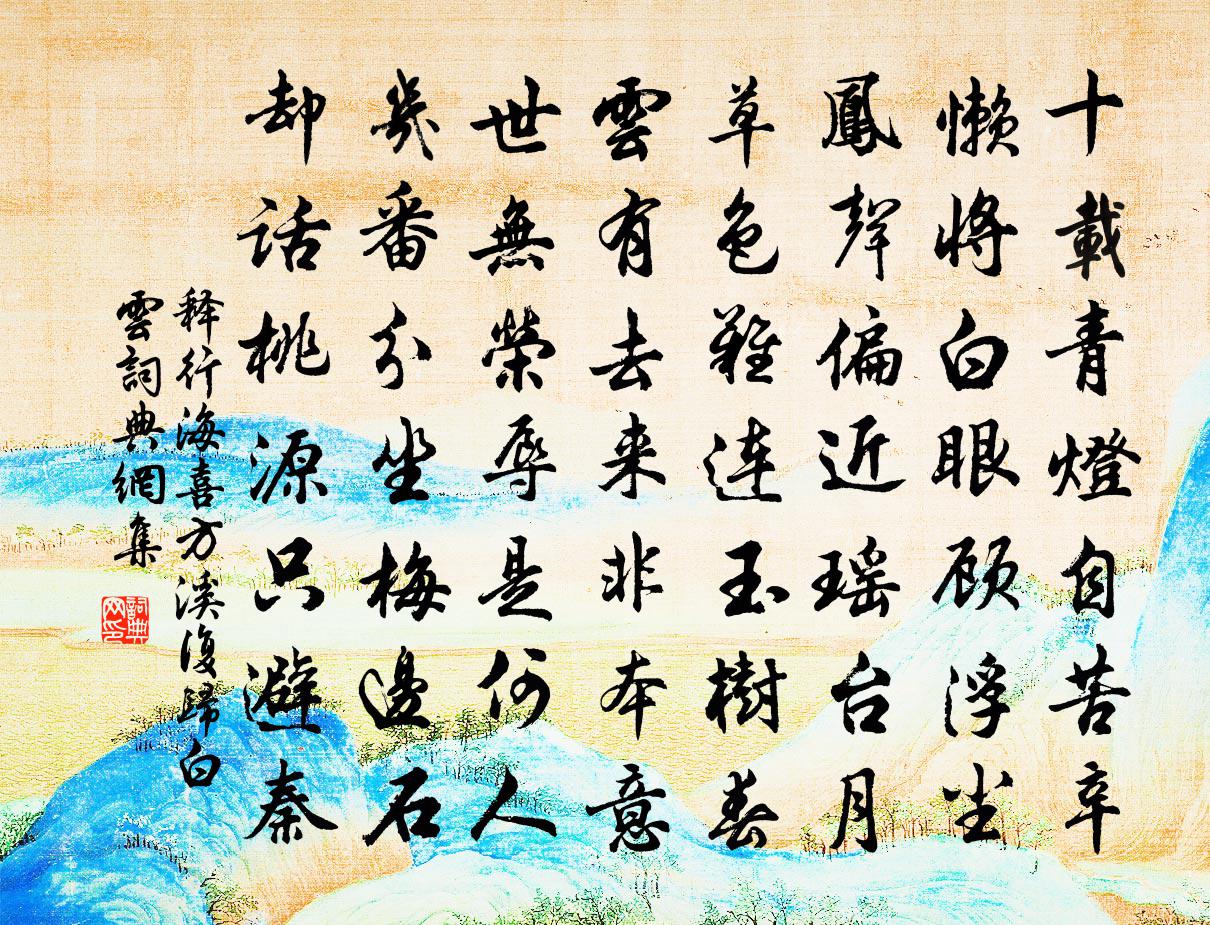 十載青燈自苦辛
懒將白眼顾浮尘
鳳聲偏近瑶台月
草色難連玉樹春
雲有去来非本意
世無榮辱是何人
幾番分坐梅邊石
却話桃源只避秦
释行海喜方溪復歸白
雲詞典網集
詞典网印